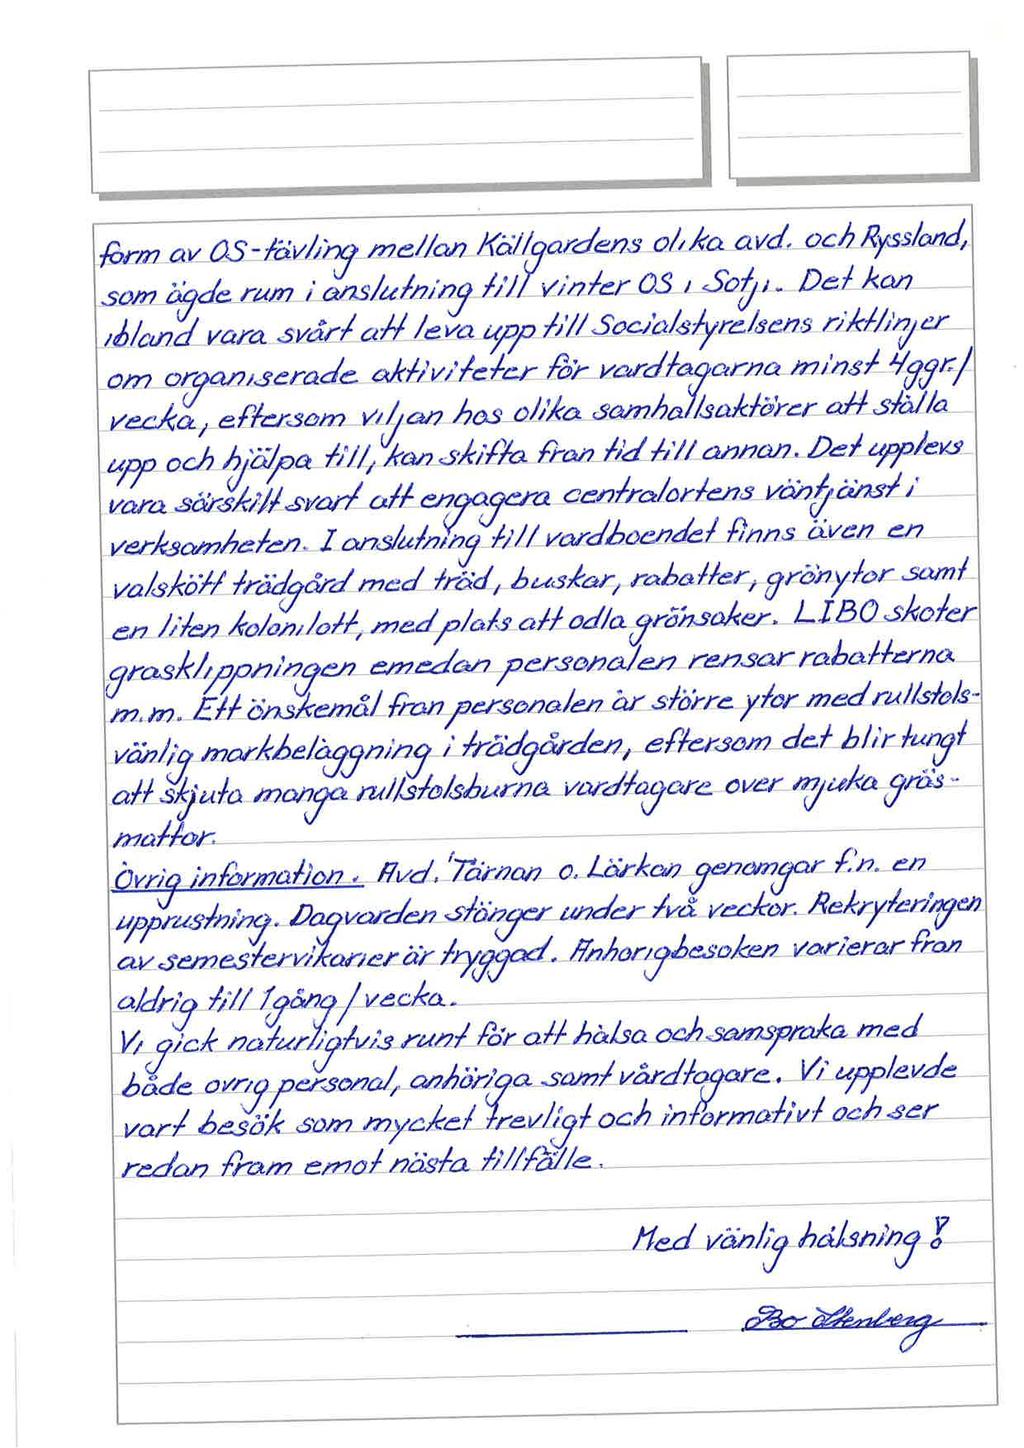 form av OS-tävling mellan Källgardens olika avd. och Ryssland,
som ägde rum i anslutning till vinter OS i Sotji. Det kan
ibland vara svårt att leva upp till Socialstyrelsens riktlinjer
om organiserade aktiviteter för vardtagarna minst 4ggr/
vecka, eftersom viljan hos olika samhallsaktörer att ställa
upp och hjälpa till, kan skifta fran tid till annan. Det upplevs
vara särskilt svart att engagera centralortens väntjänst i
verksamheten. I anslutning till vardboendet finns även en
valskött trädgård med träd, buskar, rabatter, grönytor samt
en liten kolonilott, med plats att odla grönsaker. LIBO skoter
grasklippningen emedan personalen rensar rabatterna
m.m. Ett önskemål fran personalen är större ytor med rullstols-
vänlig markbeläggning i trädgården, eftersom det blir tungt
att skjuta manga rullstolsburna vardtagare over mjuka gräs-
mattor.
Övrig information. Avd. Tärnan o. Lärkan genomgar f.n. en
upprustning. Dagvarden stänger under två veckor. Rekryteringen
av semestervikarier är tryggad. Anhorigbesoken varierar fran
aldrig till 1gång/vecka.
Vi gick naturligtvis runt för att hälsa och samspraka med
både ovrig personal, anhöriga samt vårdtagare. Vi upplevde
vart besök som mycket trevligt och informativt och ser
redan fram emot nästa tillfälle.
Med vänlig hälsning!
Bo Stenberg